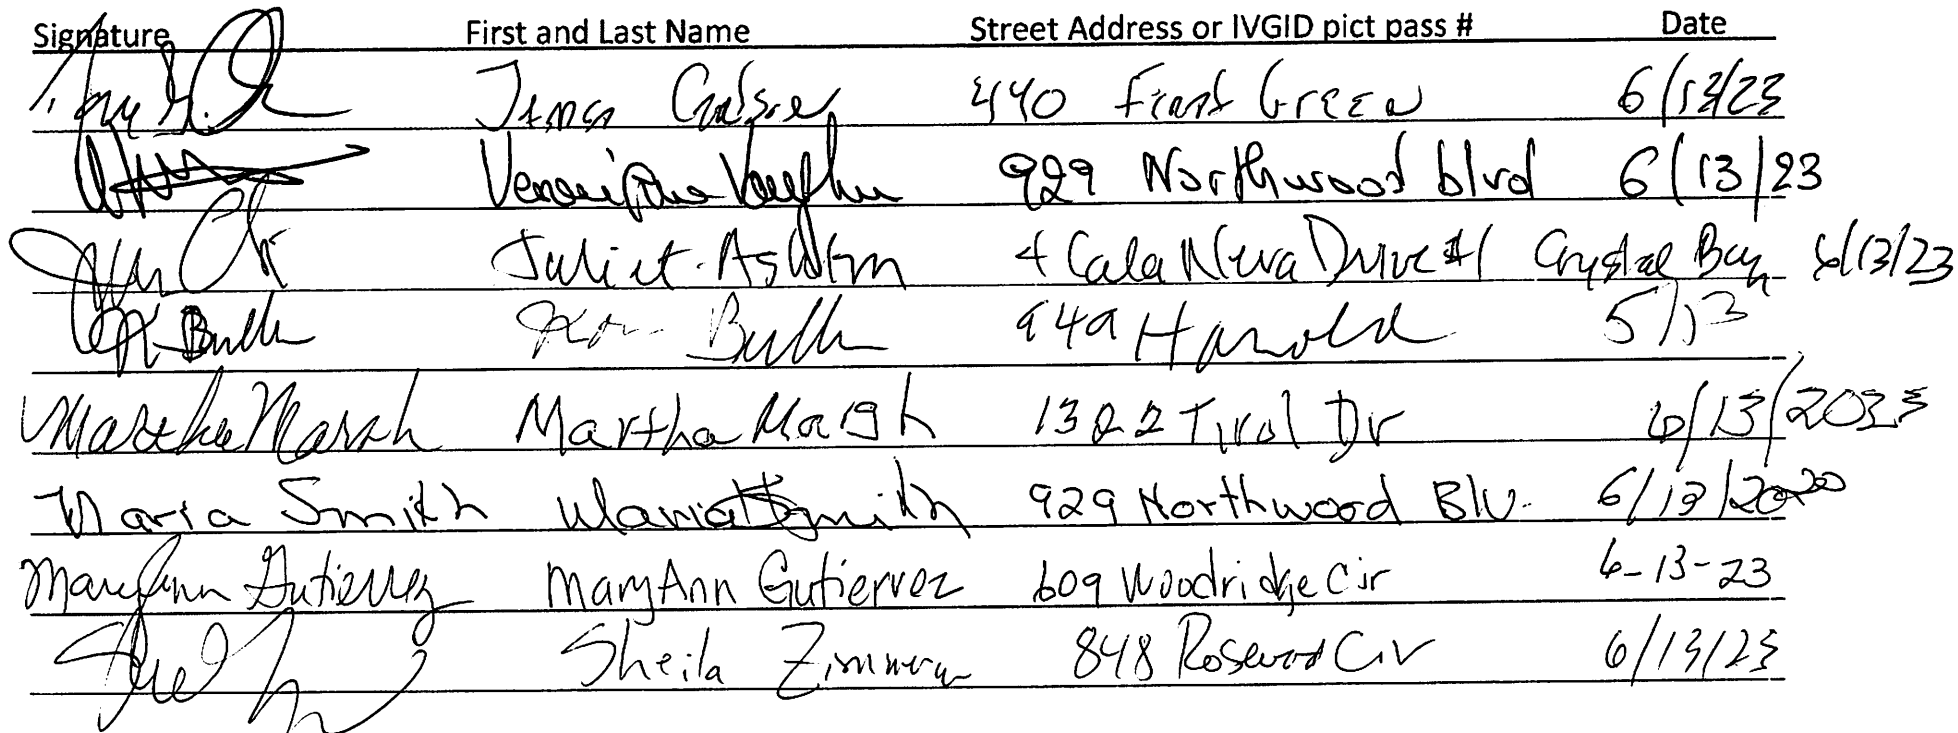 Signature First and Last Name Street Address or IVGID pict pass # Date
440 First Green 6/13/23
929 Northwood blvd 6/13/23
Juliet Ashton 4 Cala Neva Drive #1 Crystal Bay 6/13/23
K Bulk 949 Harold 5/13
Martha Marsh Martha Marsh 1322 Tirol Dr 6/13/2023
Maria Smith Maria Smith 929 Northwood Blv. 6/13/2020
MaryAnn Gutierrez MaryAnn Gutierrez 609 Woodridge Cir 6-13-23
Sheila 848 Rosewood Cir 6/13/23